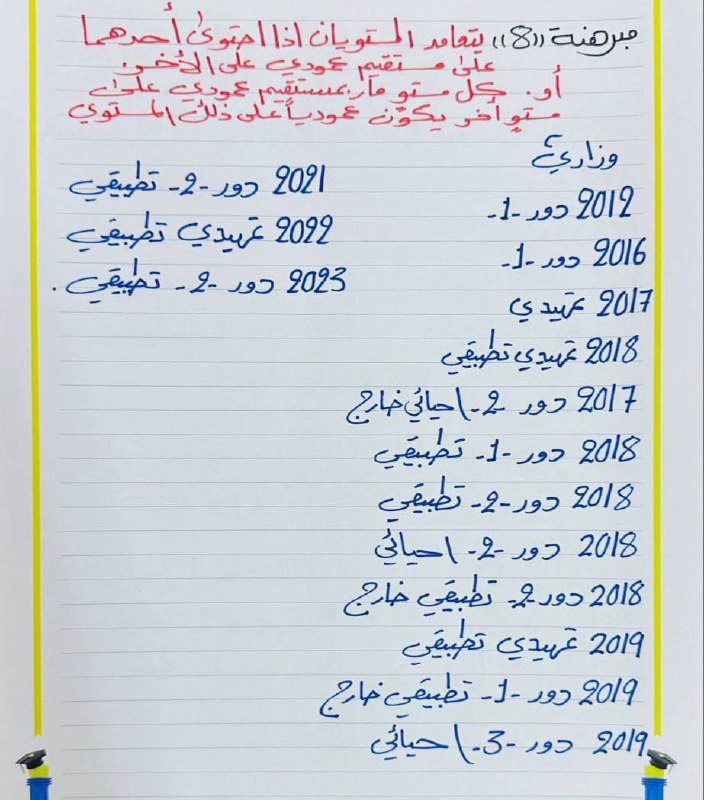 مبرهنة ((8)) يتعامد المستويان اذا احتوى أحدهما
على مستقيم عمودي على الأخر.
أو. كل مستو مار بمستقيم عمودي على
مستوٍ أخر يكون عمودياً على ذلك المستوي
وزاري
2012 دور -1-
2016 دور -1-
2017 تمهيدي
2018 تمهيدي تطبيقي
2017 دور -2- احيائي خارج
2018 دور -1- تطبيقي
2018 دور -2- تطبيقي
2018 دور -2- احيائي
2018 دور -2- تطبيقي خارج
2019 تمهيدي تطبيقي
2019 دور -1- تطبيقي خارج
2019 دور -3- احيائي
2021 دور -2- تطبيقي
2022 تمهيدي تطبيقي
2023 دور -2- تطبيقي .